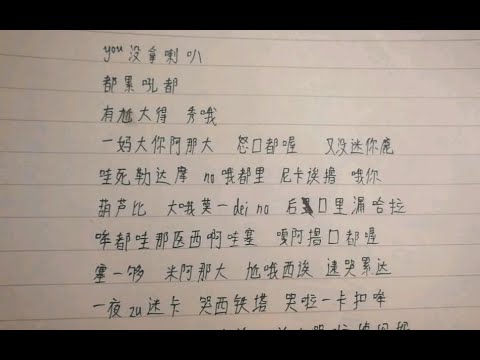 you 没拿喇叭
都累吼都
有尬大得 秀哦
一妈大你阿那大 怒口都喔 又没迷你鹿
哇死勒达摩 no哦都里 尼卡诶撸 哦你
葫芦比 大哦莫一dei no 后 口里漏哈拉
哞都哇那医西啊哇塞 嘎阿撸口都喔
塞一够 米阿那大 尬哦西诶 速哭累达
一夜zu迷卡 哭西铁塔 男啦一卡扣哞